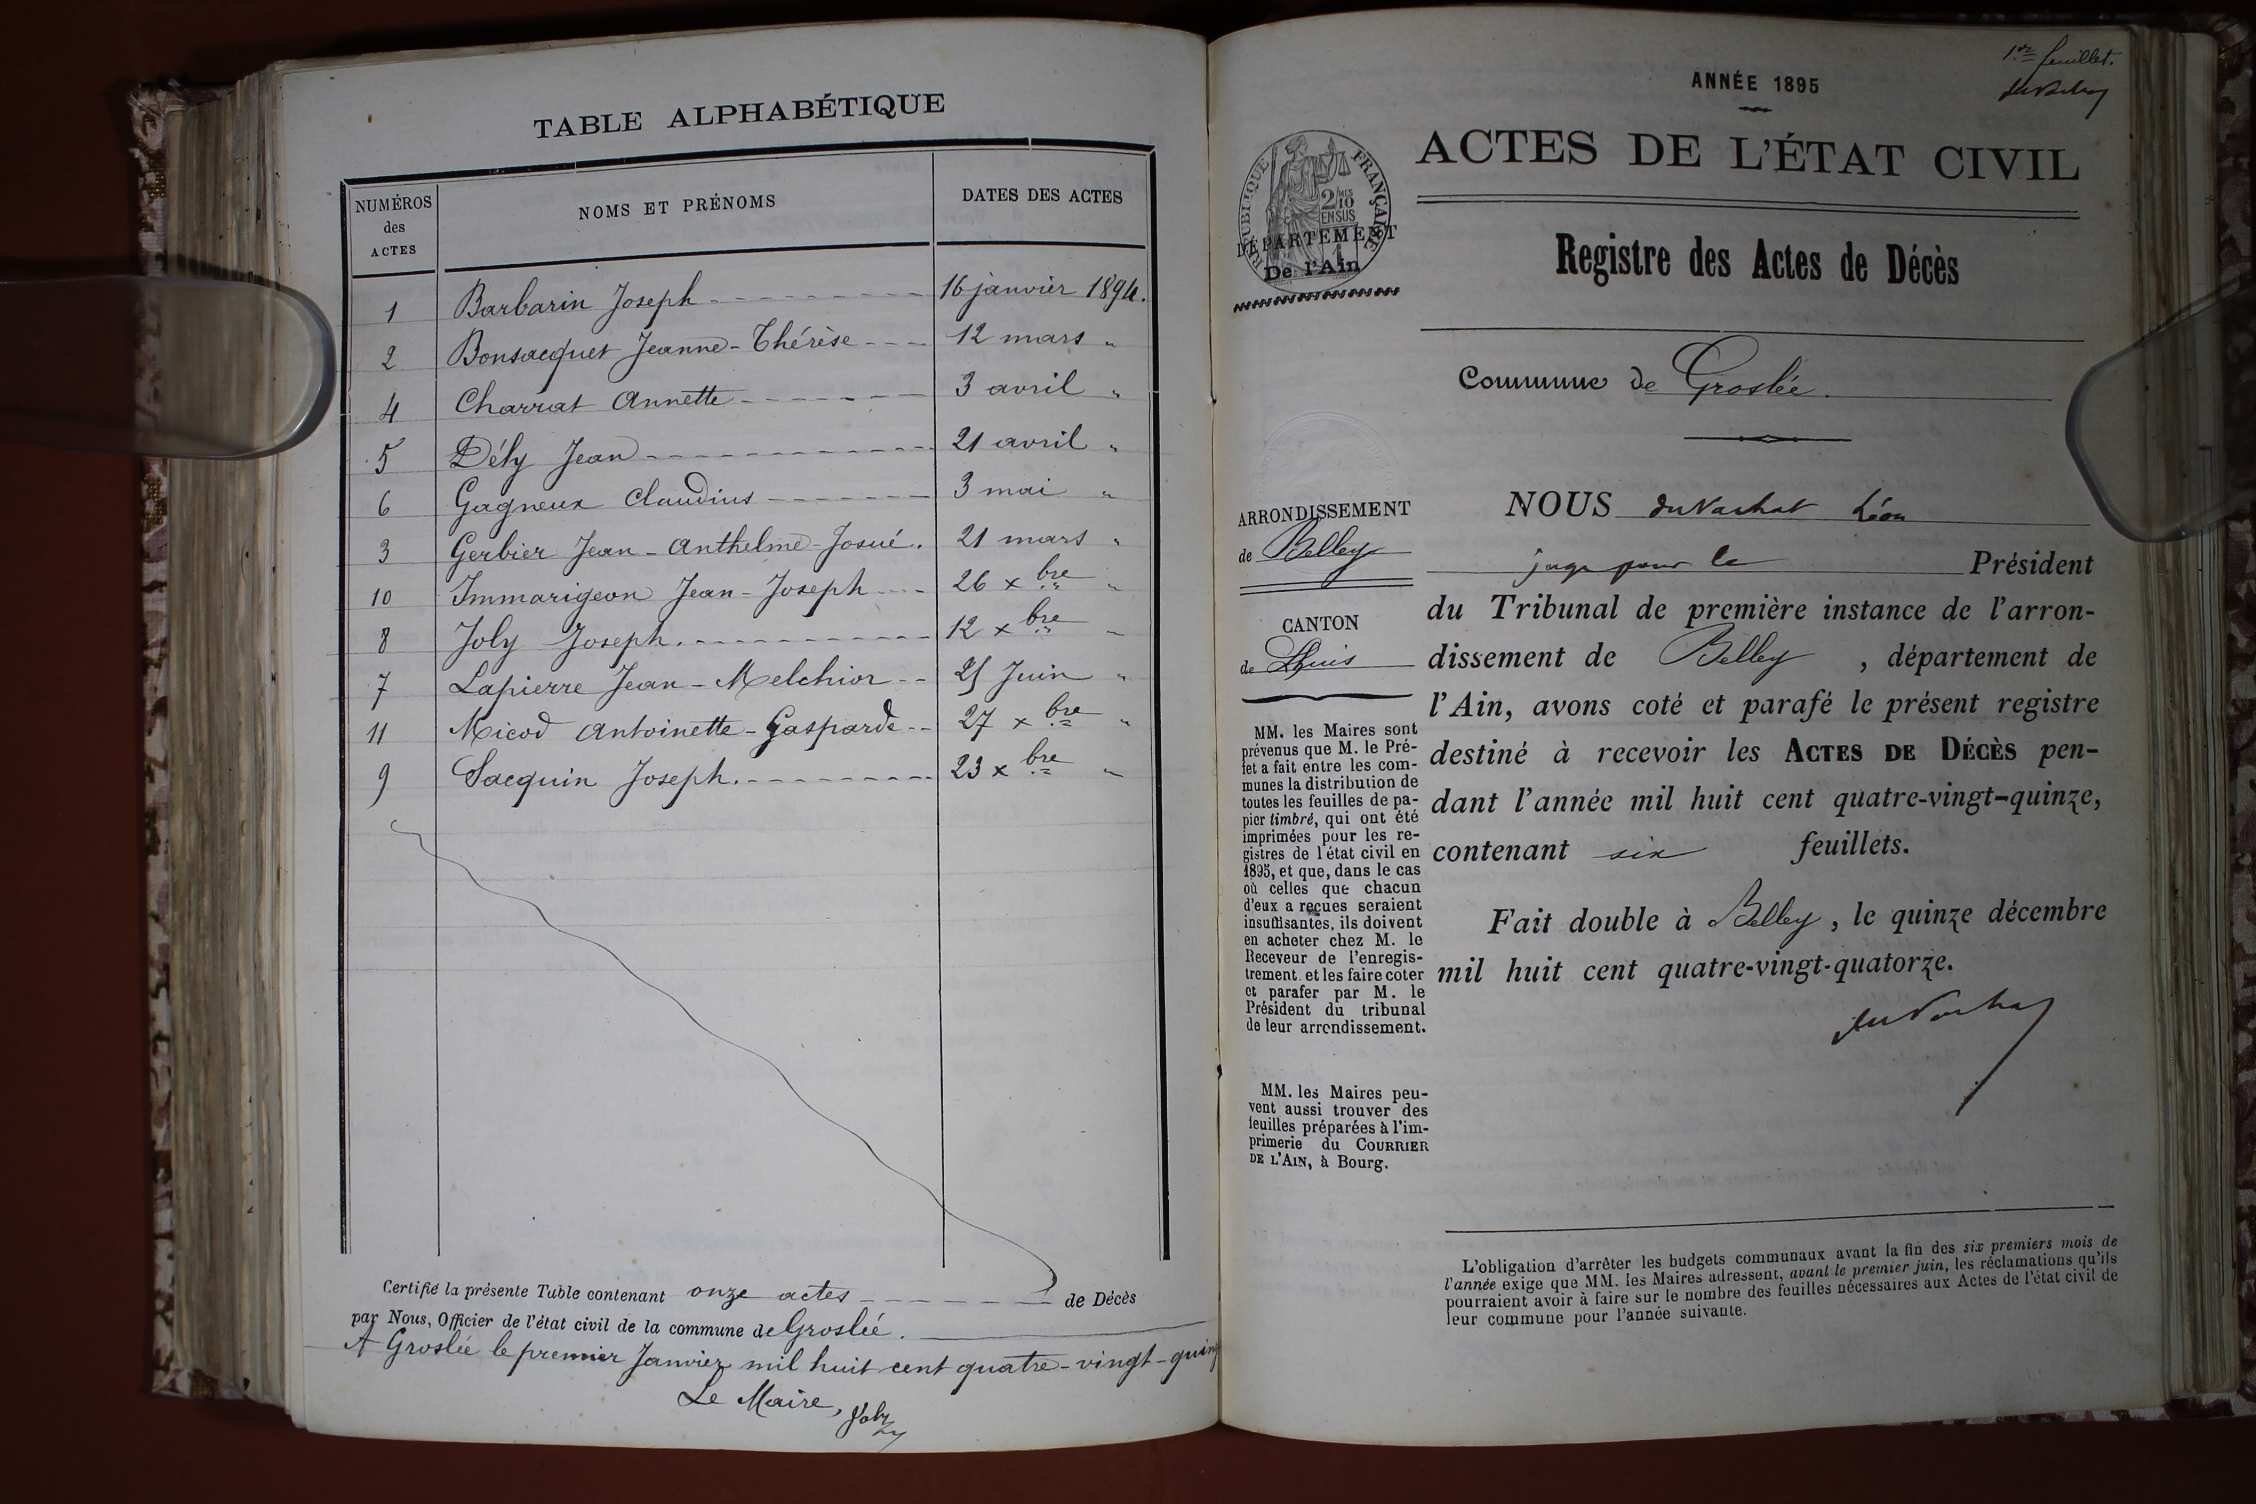 TABLE ALPHABÉTIQUE
NUMÉROS des ACTES
NOMS ET PRÉNOMS
DATES DES ACTES
1 Barbarin Joseph 16 janvier 1894.
2 Bonsacquet Jeanne-Thérèse 12 mars "
4 Charrat Annette 3 avril "
5 Dély Jean 21 avril "
6 Gagneux Claudius 3 mai "
3 Gerbier Jean-Anthelme-Josué. 21 mars "
10 Immarigeon Jean-Joseph 26 xbre "
8 Joly Joseph. 12 xbre "
7 Lapierre Jean-Melchior 25 Juin "
11 Micod Antoinette-Gasparde 27 xbre "
9 Sacquin Joseph. 23 xbre "
Certifié la présente Table contenant onze actes de Décès
par Nous, Officier de l'état civil de la commune de Groslée.
A Groslée le premier Janvier mil huit cent quatre-vingt-quinz
Le Maire, Joly
1er feuillet.
ANNÉE 1895
ACTES DE L'ÉTAT CIVIL
RÉPUBLIQUE FRANÇAISE
2/10 MES EN SUS
DÉPARTEMENT
De l'Ain
Registre des Actes de Décès
Commune de Groslée.
ARRONDISSEMENT
de Belley
CANTON
de Lhuis
MM. les Maires sont
prévenus que M. le Pré-
fet a fait entre les com-
munes la distribution de
toutes les feuilles de pa-
pier timbré, qui ont été
imprimées pour les re-
gistres de l'état civil en
1895, et que, dans le cas
où celles que chacun
d'eux a reçues seraient
insuffisantes, ils doivent
en acheter chez M. le
Receveur de l'enregis-
trement, et les faire coter
et parafer par M. le
Président du tribunal
de leur arrondissement.
MM. les Maires peu-
vent aussi trouver des
feuilles préparées à l'im-
primerie du COURRIER
DE L'AIN, à Bourg.
NOUS duVachat Léon
juge pour le Président
du Tribunal de première instance de l'arron-
dissement de Belley, département de
l'Ain, avons coté et parafé le présent registre
destiné à recevoir les ACTES DE DÉCÈS pen-
dant l'année mil huit cent quatre-vingt-quinze,
contenant six feuillets.
Fait double à Belley, le quinze décembre
mil huit cent quatre-vingt-quatorze.
duVachat
L'obligation d'arrêter les budgets communaux avant la fin des six premiers mois de
l'année exige que MM. les Maires adressent, avant le premier juin, les réclamations qu'ils
pourraient avoir à faire sur le nombre des feuilles nécessaires aux Actes de l'état civil de
leur commune pour l'année suivante.